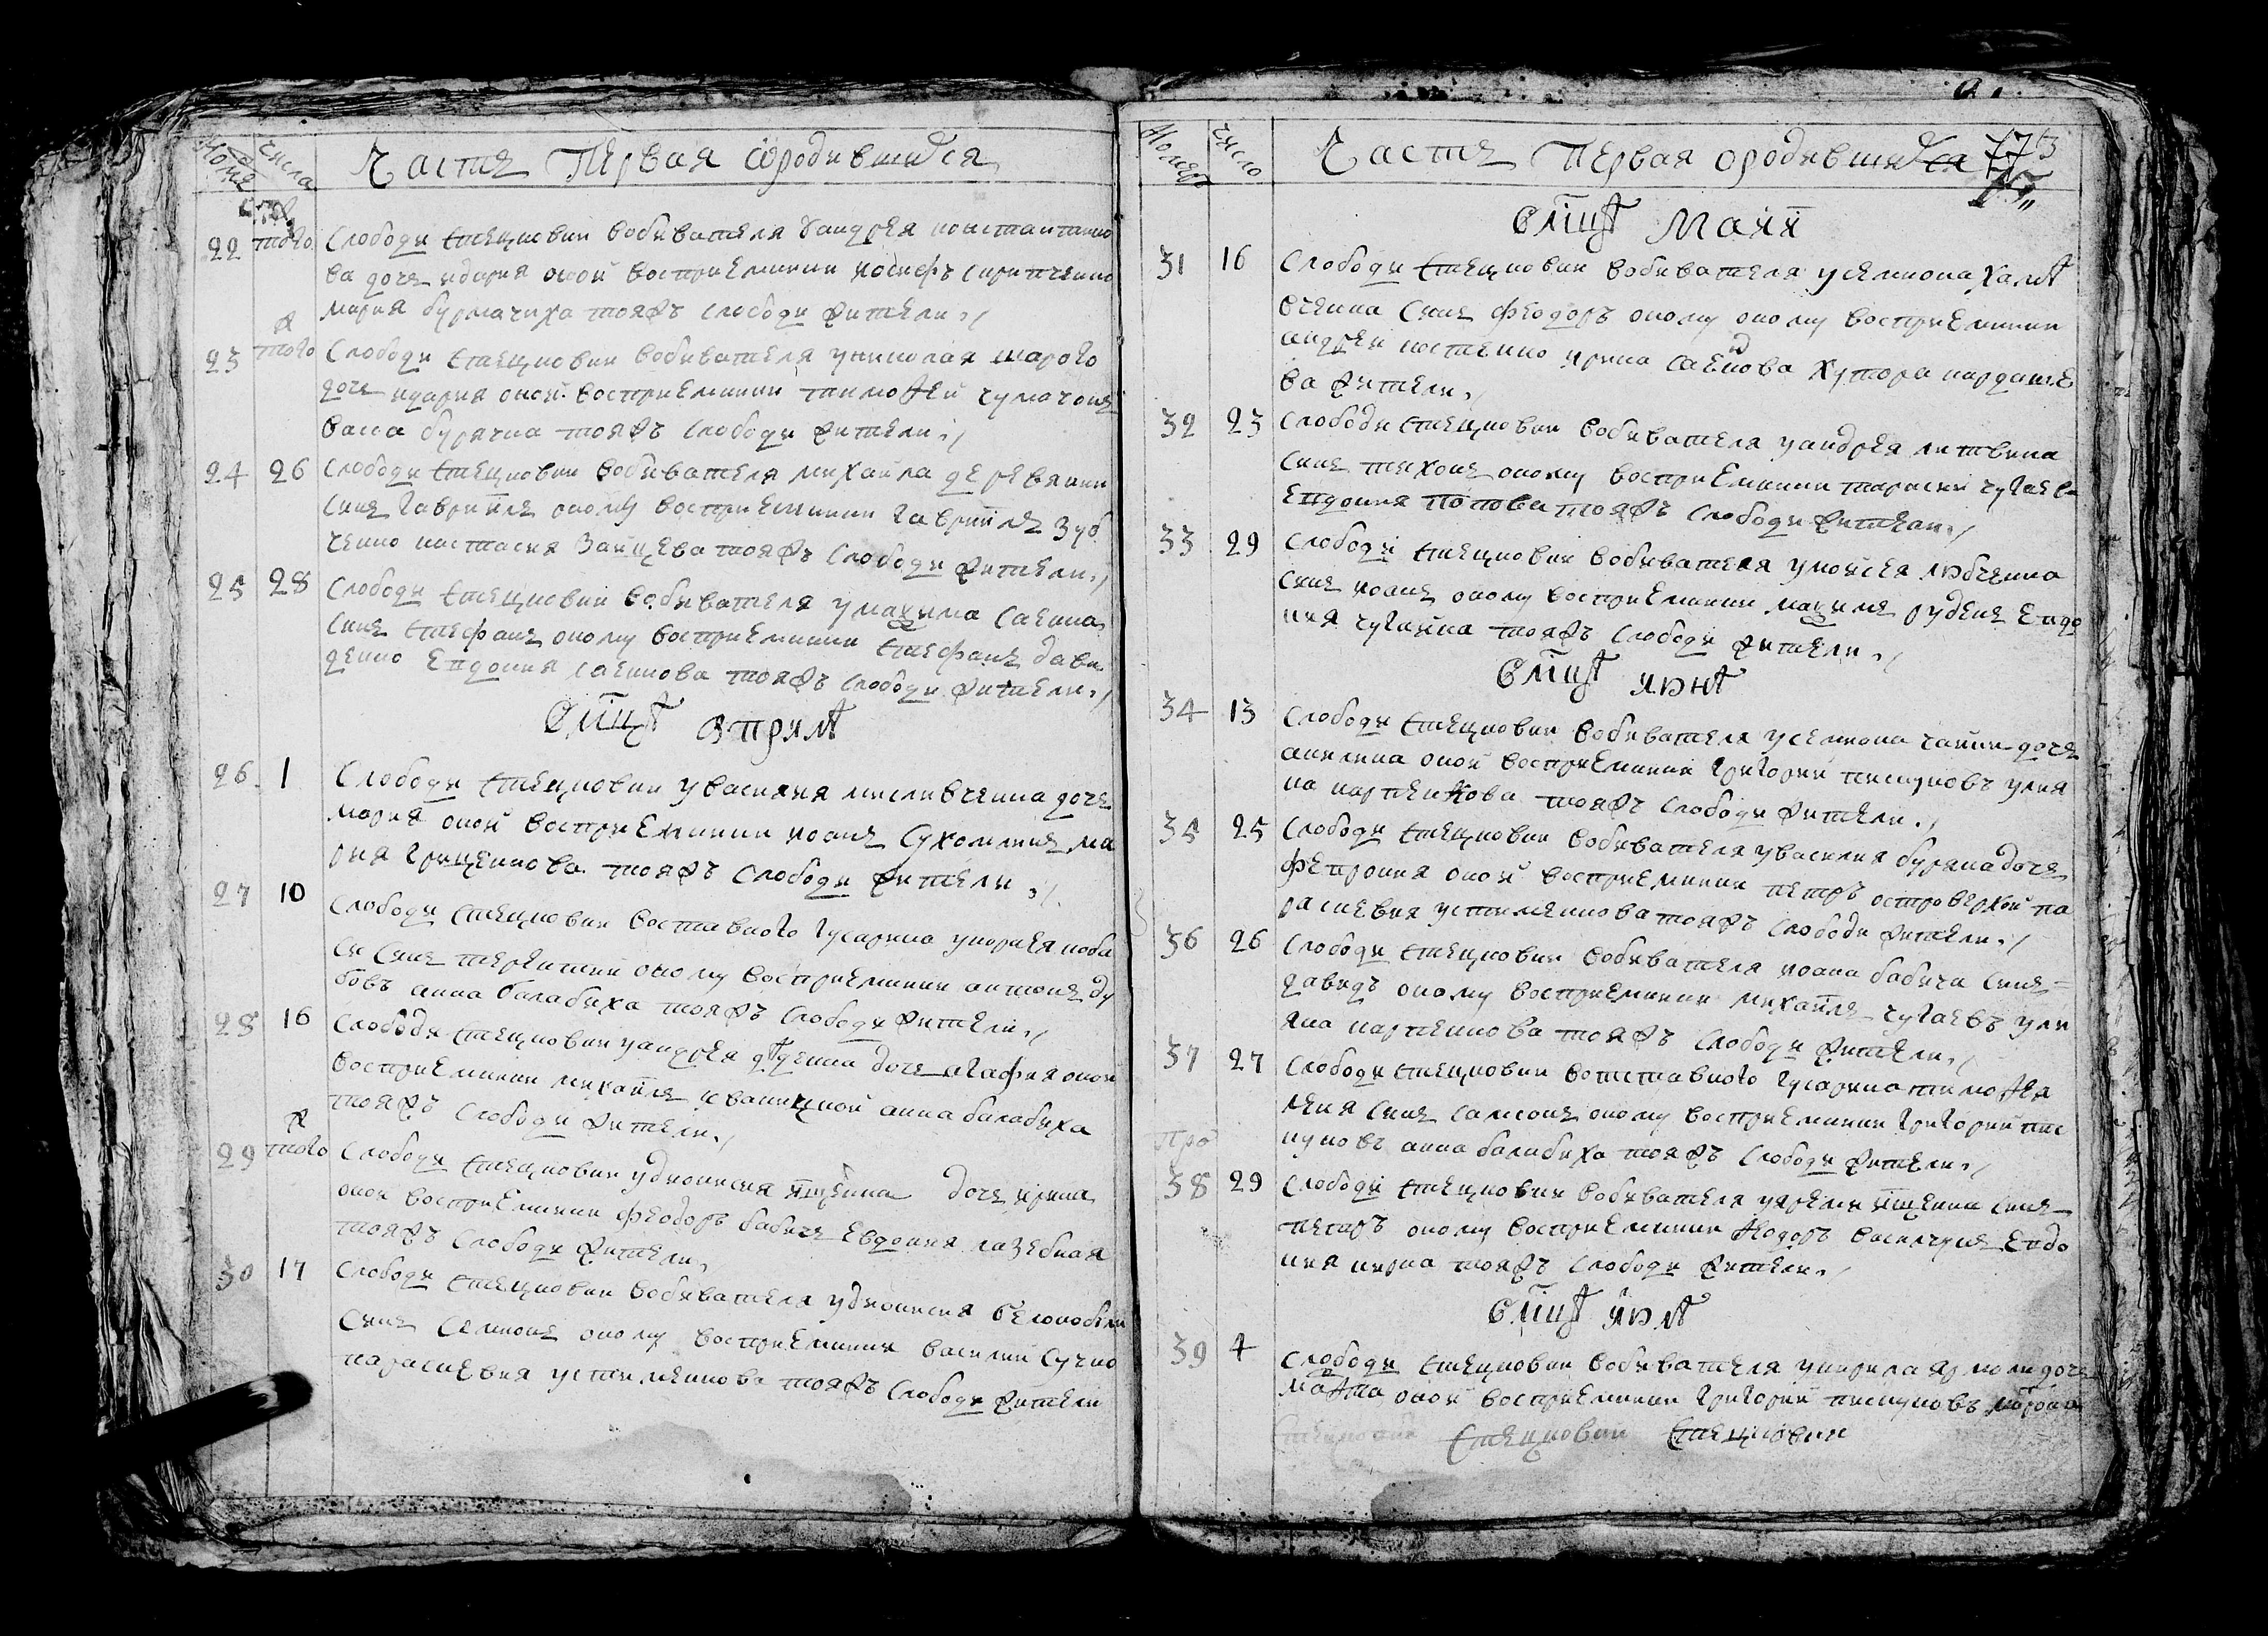 Номер числа Часть Первая ородившихся
22 того Слободи Стецковки вобивателя Уандрея константино
ва дочь идария оной восприемники иосифъ скрипченко
мария бурмачиха тояжъ слободи жители
23 того Слободи Стецковки вобивателя униколая шарого
дочь идария оной восприемники тимофей чумаченъ
васса бурячка тояжъ слободи жители
24 26 Слободи Стецковки вобивателя михайла деревянки
синъ гаврѝилъ оному восприемники гаврѝилъ зуб
ченко настасия Зайцева тояжъ Слободи жители
25 28 Слободи Стецковки вобивателя умаѯима саенка
синъ Стефанъ оному восприемники Стефанъ дави
денко Евдокия саенкова тояжъ Слободи жители
Вмцѣ Априлѣ
26 1 Слободи Стецковки увасилия мисливченка дочь
мария оной восприемники иоанъ Сухомлинъ ма
рия грищенкова тояжъ слободи жители
27 10 Слободи Стецковки воставного гусарина укорнея коба
си синъ терентий оному восприемники антонъ ду
бовъ анна балабиха тояжъ слободи жители
28 16 Слободи Стецковки уандрея дѣденка дочь агафия оной
восприемники михаилъ кваницкой анна балабиха
тояжъ слободи жители
29 того Слободи Стецковки удионисия ищенка дочь ирина
оной восприемники феодоръ бабичъ Евдокия лазебная
тояжъ слободи жители
30 17 Слободи Стецковки вобивателя удионисия белокобили
Синъ Семионъ оному восприемники василий Сучко
параскевия устименкова тояжъ слободи жители
Номеръ число Часть Первая ородившихся 773
Вмцѣ Маии
31 16 Слободи Стецковки вобивателя усемиона халѧ
вченка Синъ феодоръ оному оному восприемники
андрей костенко ирина саенкова хутора кардаше
ва жители
32 23 Слободи Стецковки вобивателя уандрея литвина
синъ тихонъ оному восприемники тарасий чугаевъ
Евдокия попова тояжъ Слободи жители
33 29 Слободи Стецковки вобивателя умоисея любченка
синъ иоанъ оному восприемники маѯимъ руденъ Евдо
кия чугайка тояжъ слободи жители
Вмцѣ июнѣ
34 13 Слободи Стецковки вобивателя усемиона чайки дочь
акилина оной восприемники григорий пискуновъ улия
на карпенкова тояжъ слободи жители
35 25 Слободи Стецковки вобивателя увасилия буряка дочь
Феврония оной восприемники петръ островерхой па
раскевия устименкова тояжъ слободи жители
36 26 Слободи Стецковки вобивателя иоана бабича синъ
давидъ оному восприемники михаилъ чугаевъ ули
яна карпенкова тояжъ Слободи жители
37 27 Слободи Стецковки вотставного гусарина тимофея
синъ самсонъ оному восприемники григорий пис
куновъ анна балабиха тояжъ слободи жители
38 29 Слободи Стецковки вобивателя уяреми ищенка синъ
петръ оному восприемники Ѳеодоръ василчукъ Евдо
кия тояжъ слободи жители
Вмцѣ июлѣ
39 4 Слободи Стецковки вобивателя укирила ярмоли дочь
марфа оной восприемники григорий пискуновъ
Стецковки Стецковки Стецковки